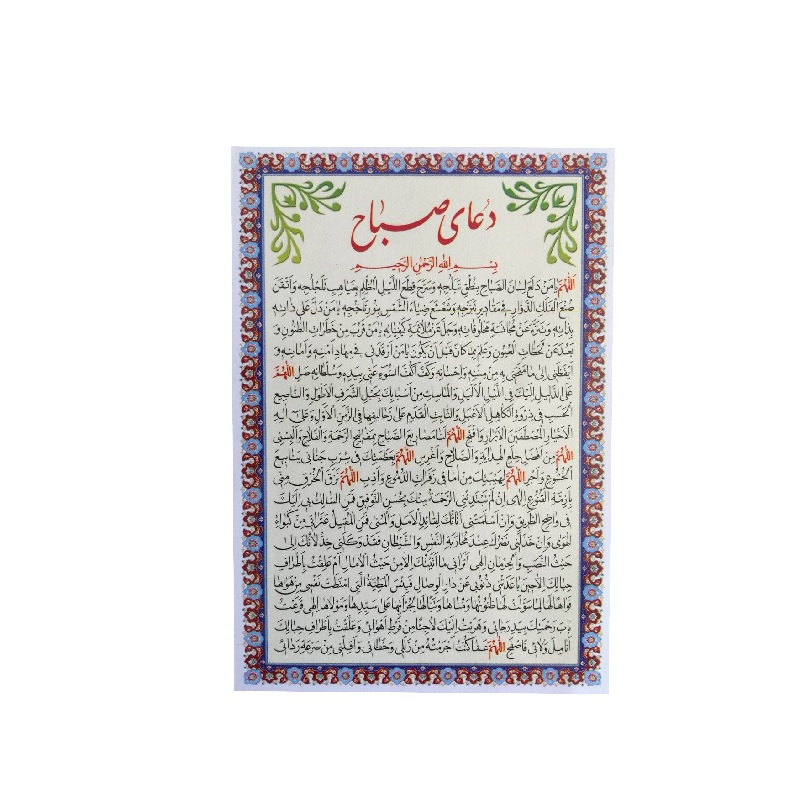 دعای صباح
بِسْمِ اللهِ الرَّحْمٰنِ الرَّحیمِ
اَللّهُمَّ یا مَنْ دَلَعَ لِسانَ الصَّباحِ بِنُطْقِ تَبَلُّجِهِ وَسَرَّحَ قِطَعَ اللَّیْلِ الْمُظْلِمِ بِغَیاهِبِ تَلَجْلُجِهِ وَاَتْقَنَ
صُنْعَ الْفَلَکِ الدَّوّارِ فی مَقادیرِ تَبَرُّجِهِ وَشَعْشَعَ ضِیاءَ الشَّمْسِ بِنُورِ تَاَجُّجِهِ یا مَنْ دَلَّ عَلی ذاتِهِ
بِذاتِهِ وَتَنَزَّهَ عَنْ مُجانَسَةِ مَخْلُوقاتِهِ وَجَلَّ عَنْ مُلائَمَةِ کَیْفِیّاتِهِ یا مَنْ قَرُبَ مِنْ خَطَراتِ الظُّنُونِ وَ
بَعُدَ عَنْ لَحَظاتِ الْعُیُونِ وَعَلِمَ بِما کانَ قَبْلَ اَنْ یَکُونَ یا مَنْ اَرْقَدَنی فی مِهادِ اَمْنِهِ وَاَمانِهِ وَ
اَیْقَظَنی اِلی ما مَنَحَنی بِهِ مِنْ مِنَنِهِ وَاِحْسانِهِ وَکَفَّ اَکُفَّ السُّوءِ عَنّی بِیَدِهِ وَسُلْطانِهِ صَلِّ اللّهُمَّ
عَلَی الدَّلیلِ اِلَیْکَ فِی اللَّیْلِ الْاَلْیَلِ وَالْماسِکِ مِنْ اَسْبابِکَ بِحَبْلِ الشَّرَفِ الْاَطْوَلِ وَالنّاصِعِ
الْحَسَبِ فی ذِرْوَةِ الْکاهِلِ الْاَعْبَلِ وَالثّابِتِ الْقَدَمِ عَلی زَحالیفِها فِی الزَّمَنِ الْاَوَّلِ وَعَلی الِهِ
الْاَخْیارِ الْمُصْطَفَیْنَ الْاَبْرارِ وَافْتَحِ اللّهُمَّ لَنا مَصاریعَ الصَّباحِ بِمَفاتیحِ الرَّحْمَةِ وَالْفَلاحِ وَاَلْبِسْنی
اللّهُمَّ مِنْ اَفْضَلِ خِلَعِ الْهِدایَةِ وَالصَّلاحِ وَاَغْرِسِ اللّهُمَّ بِعَظَمَتِکَ فی شِرْبِ جَنانی یَنابیعَ
الْخُشُوعِ وَاَجْرِ اللّهُمَّ لِهَیْبَتِکَ مِنْ اماقی زَفَراتِ الدُّمُوعِ وَاَدِّبِ اللّهُمَّ نَزَقَ الْخُرْقِ مِنّی
بِاَزِمَّةِ الْقُنُوعِ اِلهی اِنْ لَمْ تَبْتَدِئْنِی الرَّحْمَةُ مِنْکَ بِحُسْنِ التَّوْفیقِ فَمَنِ السّالِکُ بی اِلَیْکَ
فی واضِحِ الطَّریقِ وَاِنْ اَسْلَمَتْنی اَناتُکَ لِقائِدِ الْاَمَلِ وَالْمُنی فَمَنِ الْمُقیلُ عَثَراتی مِنْ کَبَواتِ
الْهَوی وَاِنْ خَذَلَنی نَصْرُکَ عِنْدَ مُحارَبَةِ النَّفْسِ وَالشَّیْطانِ فَقَدْ وَکَلَنی خِذْلانُکَ اِلی
حَیْثُ النَّصَبِ وَالْحِرْمانِ اِلهی اَتَرانی ما اَتَیْتُکَ اِلّا مِنْ حَیْثُ الْامالِ اَمْ عَلِقْتُ بِاَطْرافِ
حِبالِکَ اِلّا حینَ باعَدَتْنی ذُنُوبی عَنْ دارِ الْوِصالِ فَبِئْسَ الْمَطِیَّةُ الَّتی امْتَطَتْ نَفْسی مِنْ هَواها
فَواهًا لَها لِما سَوَّلَتْ لَها ظُنُونُها وَمُناها وَتَبًّا لَها لِجُرْاَتِها عَلی سَیِّدِها وَمَوْلاها اِلهی قَرَعْتُ
بابَ رَحْمَتِکَ بِیَدِ رَجائی وَهَرَبْتُ اِلَیْکَ لاجِئًا مِنْ فَرْطِ اَهْوائی وَعَلَّقْتُ بِاَطْرافِ حِبالِکَ
اَنامِلَ وَلائی فَاصْفَحِ اللّهُمَّ عَمّا کُنْتُ اَجْرَمْتُهُ مِنْ زَلَلی وَخَطائی وَاَقِلْنی مِنْ صَرْعَةِ رِدائی